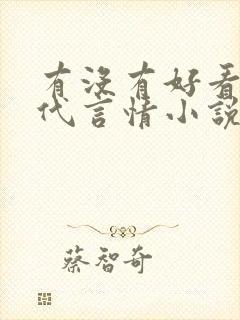 有没有好看
代言情小説
蔡智奇